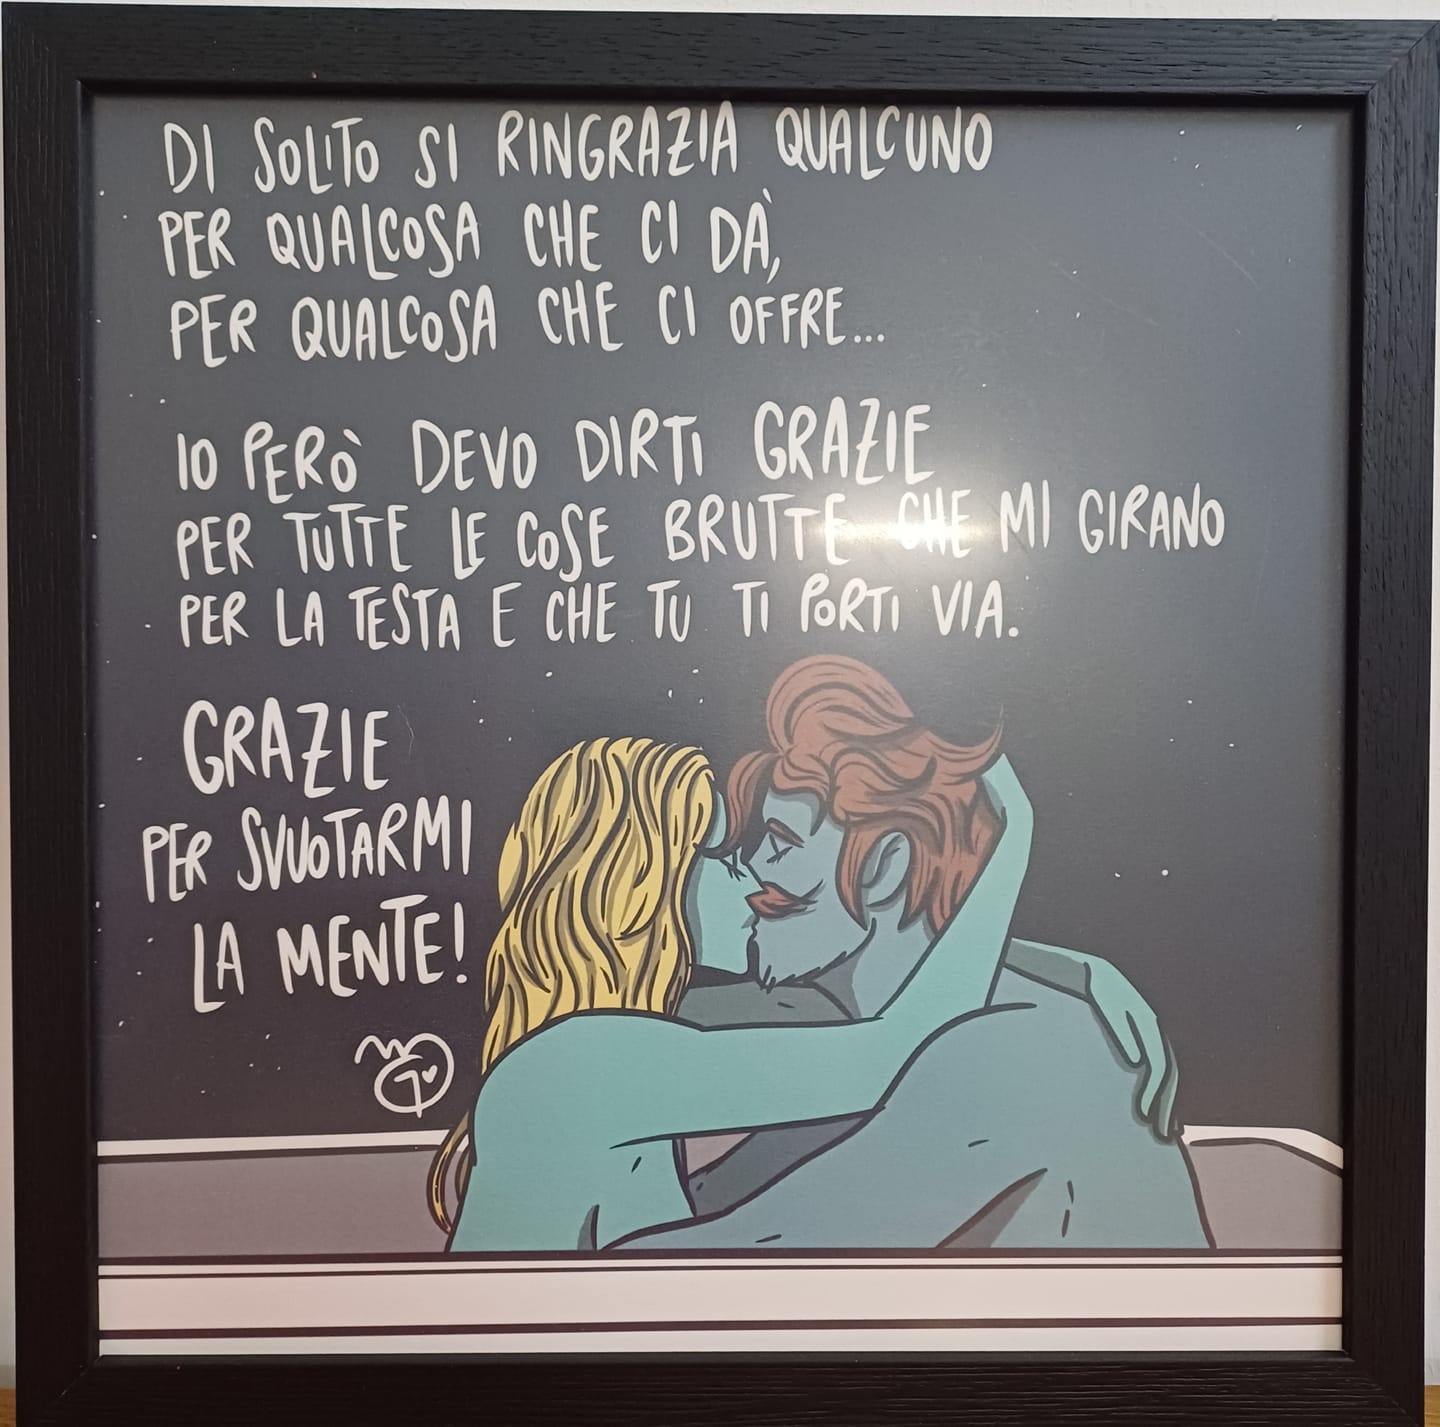 DI SOLITO SI RINGRAZIA QUALCUNO
PER QUALCOSA CHE CI DÀ,
PER QUALCOSA CHE CI OFFRE...
IO PERÒ DEVO DIRTI GRAZIE
PER TUTTE LE COSE BRUTTE CHE MI GIRANO
PER LA TESTA E CHE TU TI PORTI VIA.
GRAZIE
PER SVUOTARMI
LA MENTE!